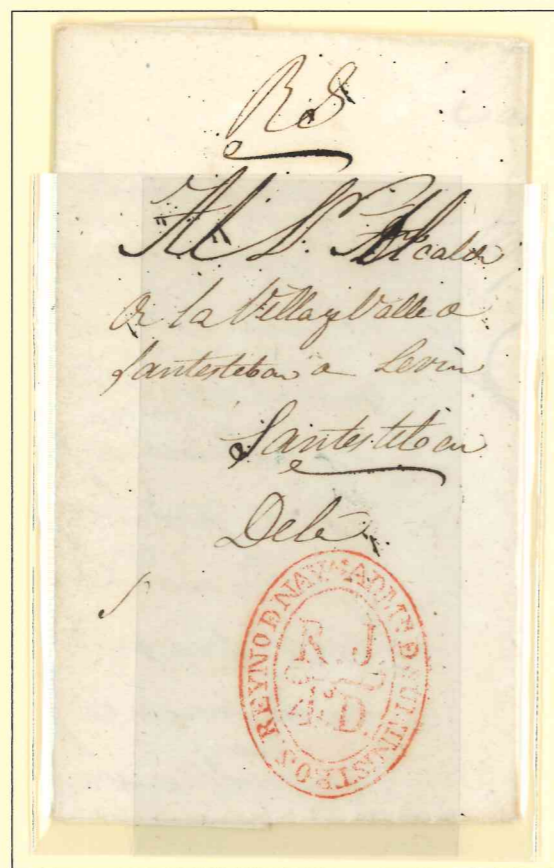 R S
Al Sr. Alcalde
de la Villa y Valle de
Santesteban de Lerin
Santesteban
REYNO D NAVA ADMN D SUMINISTROS
R J
D